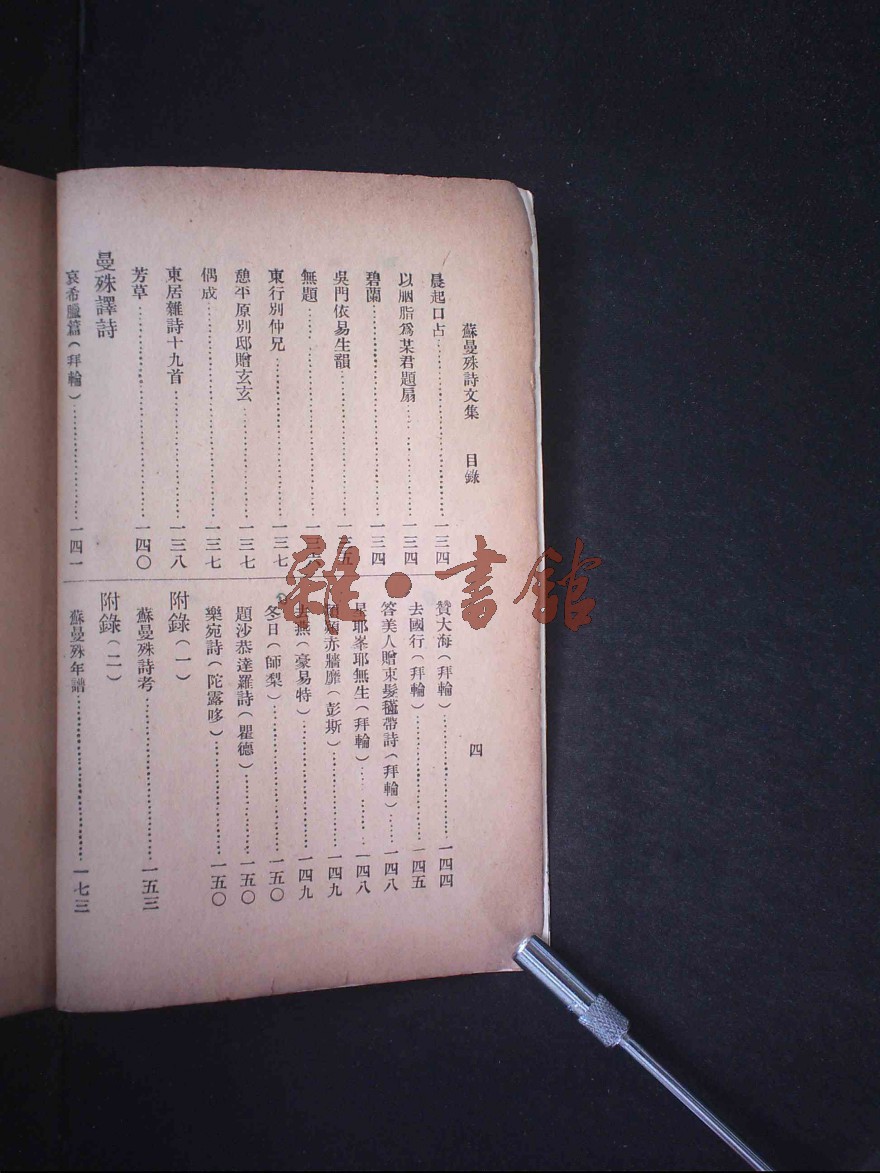 蘇曼殊詩文集　目錄
四
晨起口占……一三四
以胭脂爲某君題扇……一三四
碧蘭……一三四
吳門依易生韻……一三五
無題……一三六
東行別仲兄……一三七
憩平原別邸贈玄玄……一三七
偶成……一三七
東居雜詩十九首……一三八
芳草……一四〇
曼殊譯詩
哀希臘篇（拜輪）……一四一
贊大海（拜輪）……一四四
去國行（拜輪）……一四五
答美人贈束髮𣰽帶詩（拜輪）……一四八
星耶峯耶無生（拜輪）……一四八
赤牆靡（彭斯）……一四九
去燕（豪易特）……一四九
冬日（師梨）……一五〇
題沙恭達羅詩（瞿德）……一五〇
樂宛詩（陀露哆）……一五〇
附錄（一）
蘇曼殊詩考……一五三
附錄（二）
蘇曼殊年譜……一七三
雜·書館